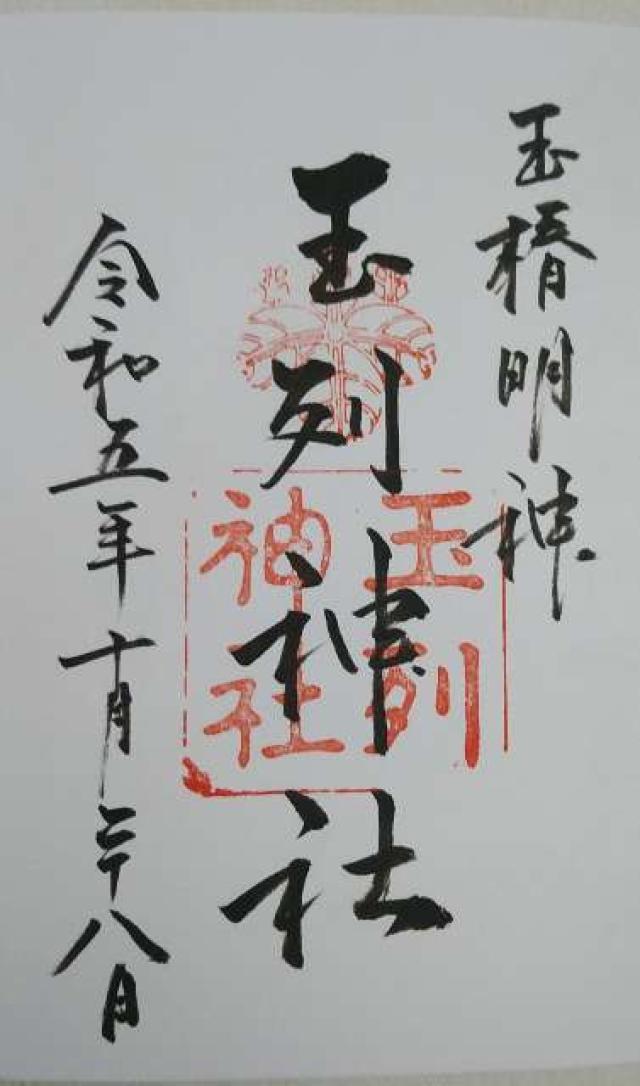 玉椿明神
玉列神社
令和五年十月二十八日
玉列
神社